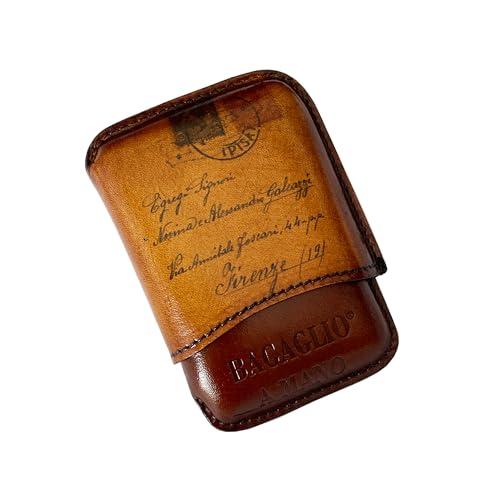 (PISA)
Egregi Signori
Nerina e Alessandro Galeazzi
Via Annibale Foscari, 44-pp
a
Firenze (12)
BACAGLIO®
A MANO